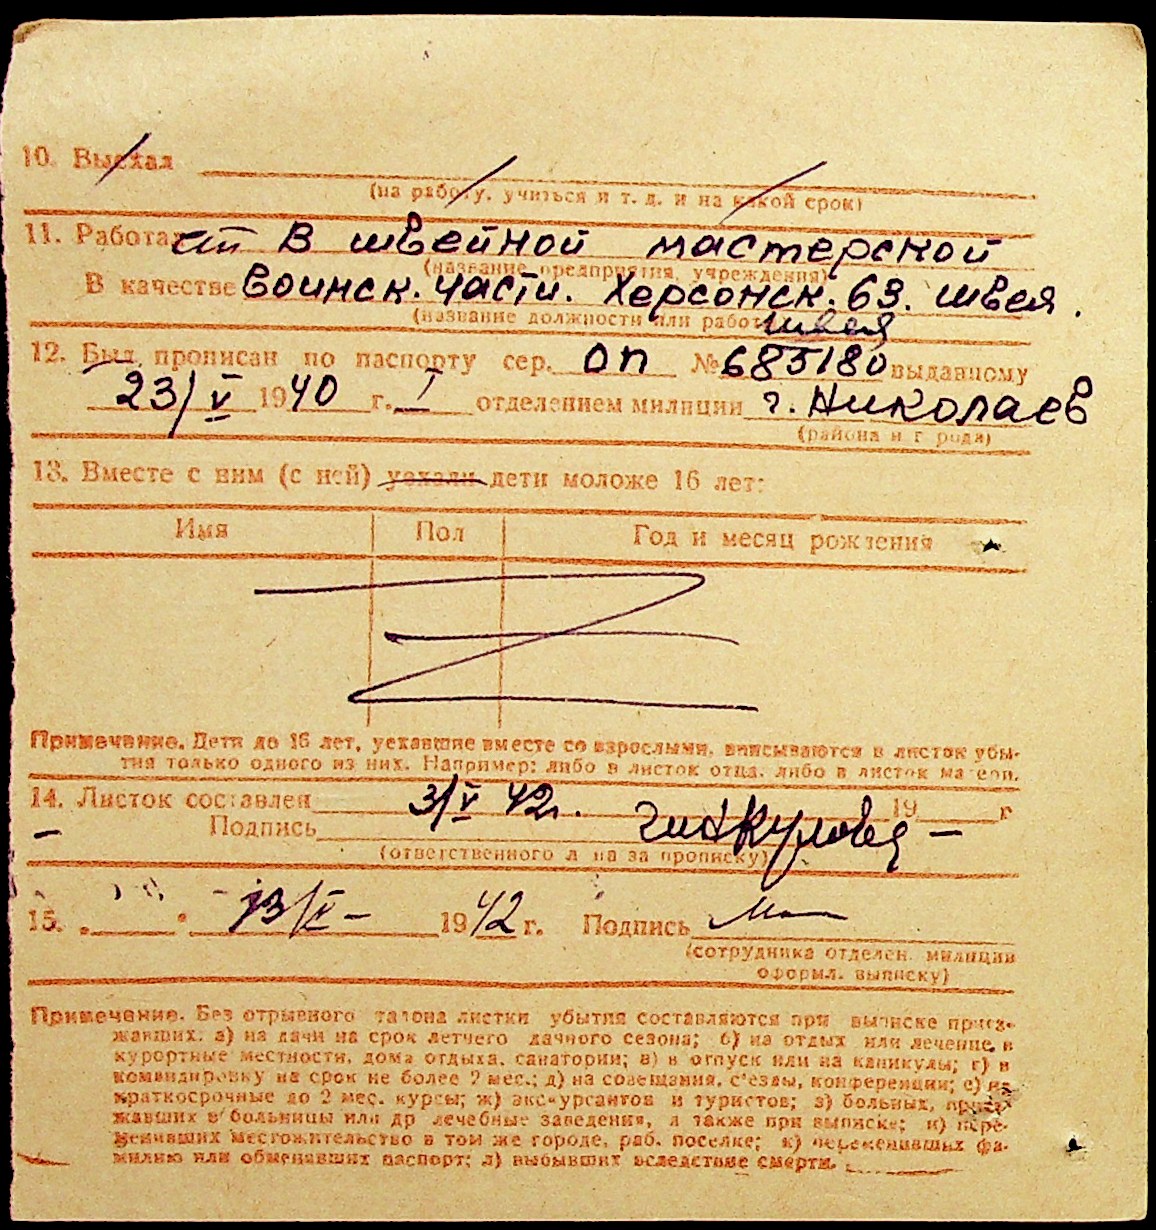 10. Выехал
(на работу, учиться и т. д. и на какой срок)
11. Работает в швейной мастерской
(название предприятия, учреждения)
В качестве Воинск. части. Херсонск. 63. швея.
(название должности или работы) швея
12. Был прописан по паспорту сер. ОП № 685180 выданному
23/V 1940 г. I отделением милиции г. Николаев
(района и города)
13. Вместе с ним (с ней) уехали дети моложе 16 лет:
Имя Пол Год и месяц рождения
Примечание. Дети до 16 лет, уехавшие вместе со взрослыми, вписываются в листок убы-
тия только одного из них. Например: либо в листок отца, либо в листок матери.
14. Листок составлен 3/V 42г. 19 г
Подпись
(ответственного лица за прописку)
15. 13/V- 1942 г. Подпись
(сотрудника отделен. милиции
оформл. выписку)
Примечание. Без отрывного талона листки убытия составляются при выписке приез-
жавших: а) на дачи на срок летнего дачного сезона; б) на отдых или лечение в
курортные местности, дома отдыха, санатории; в) в отпуск или на каникулы; г) в
командировку на срок не более 2 мес.; д) на совещания, съезды, конференции; е) на
краткосрочные до 2 мес. курсы; ж) экскурсантов и туристов; з) больных, приез-
жавших в больницы или др лечебные заведения, а также при выписке; и) пере-
менивших местожительство в том же городе, раб. поселке; к) переменивших фа-
милию или обменявших паспорт; л) выбывших вследствие смерти.